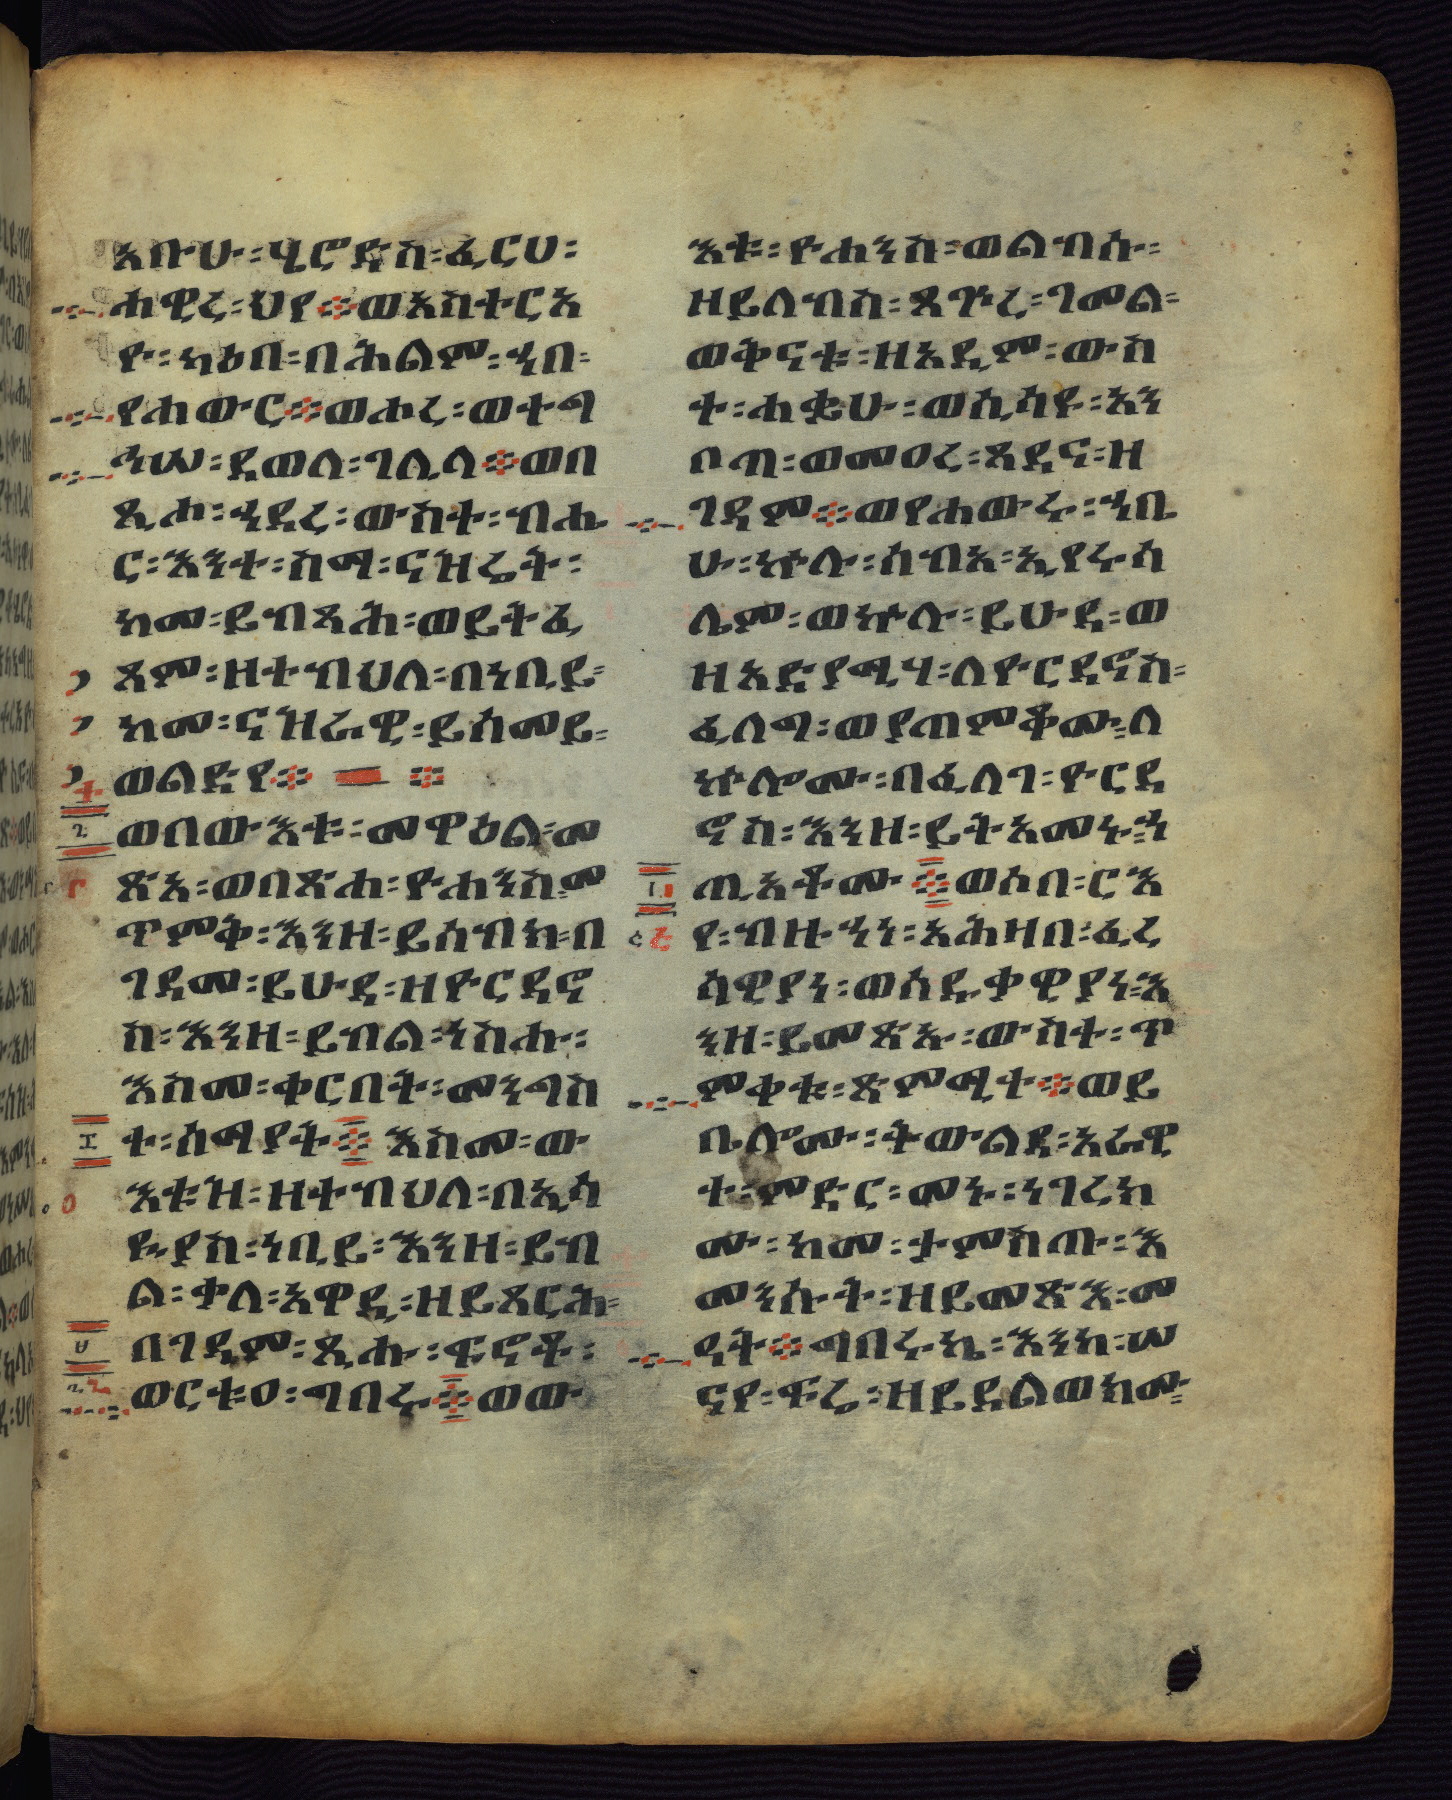 አቡሁ፡ሄሮድስ፡ፈርሀ፡
ሐዊረ፡ህየ፨ወአስተርአ
ዮ፡ካዕበ፡በሕልም፡ኀበ፡
የሐውር፨ወሖረ፡ወተግ
ኅሠ፡ደወለ፡ገሊላ፨ወበ
ጺሖ፡ኀደረ፡ውስተ፡ብሔ
ር፡እንተ፡ስማ፡ናዝሬት፡
ከመ፡ይብጻሕ፡ወይትፈ
ጸም፡ዘተብህለ፡በነቢይ፡
ከመ፡ናዝራዊ፡ይሰመይ፡
ወልድየ፨ ፨
ወበውእቱ፡መዋዕል፡መ
ጽአ፡ወበጽሐ፡ዮሐንስ፡መ
ጥምቅ፡እንዘ፡ይሰብክ፡በ
ገዳመ፡ይሁዳ፡ዘዮርዳኖ
ስ፡እንዘ፡ይብል፡ነስሑ፡
እስመ፡ቀርበት፡መንግስ
ተ፡ሰማያት፨እስመ፡ው
እቱዝ፡ዘተብህለ፡በኢሳ
ይያስ፡ነቢይ፡እንዘ፡ይብ
ል፡ቀለ፡አዋዲ፡ዘይጸርሕ፡
በገዳም፡ጺሑ፡ፍኖቶ፡
ወርቱዐ፡ግበሩ፨ወው
እቱ፡ዮሐንስ፡ወልብሱ፡
ዘይለብስ፡ጸጕረ፡ገመል፡
ወቅናቱ፡ዘአዲም፡ውስ
ተ፡ሐቌሁ፡ወሲሳዩ፡አን
በጣ፡ወመዐረ፡ጸዳና፡ዘ
ገዳም፨ወየሐውሩ፡ኀቤ
ሁ፡ኵሉ፡ሰብአ፡ኢየሩሳ
ሌም፡ወኵሉ፡ይሁዳ፡ወ
ዘአድያሚሃ፡ለዮርዳኖስ፡
ፈለግ፡ወያጠምቆሙ፡ለ
ኵሎሙ፡በፈለገ፡ዮርዳ
ኖስ፡እንዘ፡ይትአመኑ፡ኃ
ጢአቶሙ፨ወሶበ፡ርእ
የ፡ብዙኃነ፡አሕዛበ፡ፈረ
ሳዊያነ፡ወሰዱቃዊያነ፡እ
ንዘ፡ይመጽኡ፡ውስተ፡ጥ
ምቀቱ፡ጽምሚተ፨ወይ
ቤሎሙ፡ትውልደ፡አራዊ
ተ፡ምድር፡መኑ፡ነገረክ
ሙ፡ከመ፡ታምስጡ፡እ
መንሱት፡ዘይመጽእ፡መ
ዳት፨ግበሩኬ፡እንከ፡ሠ
ናየ፡ፍሬ፡ዘይደልወክሙ፡